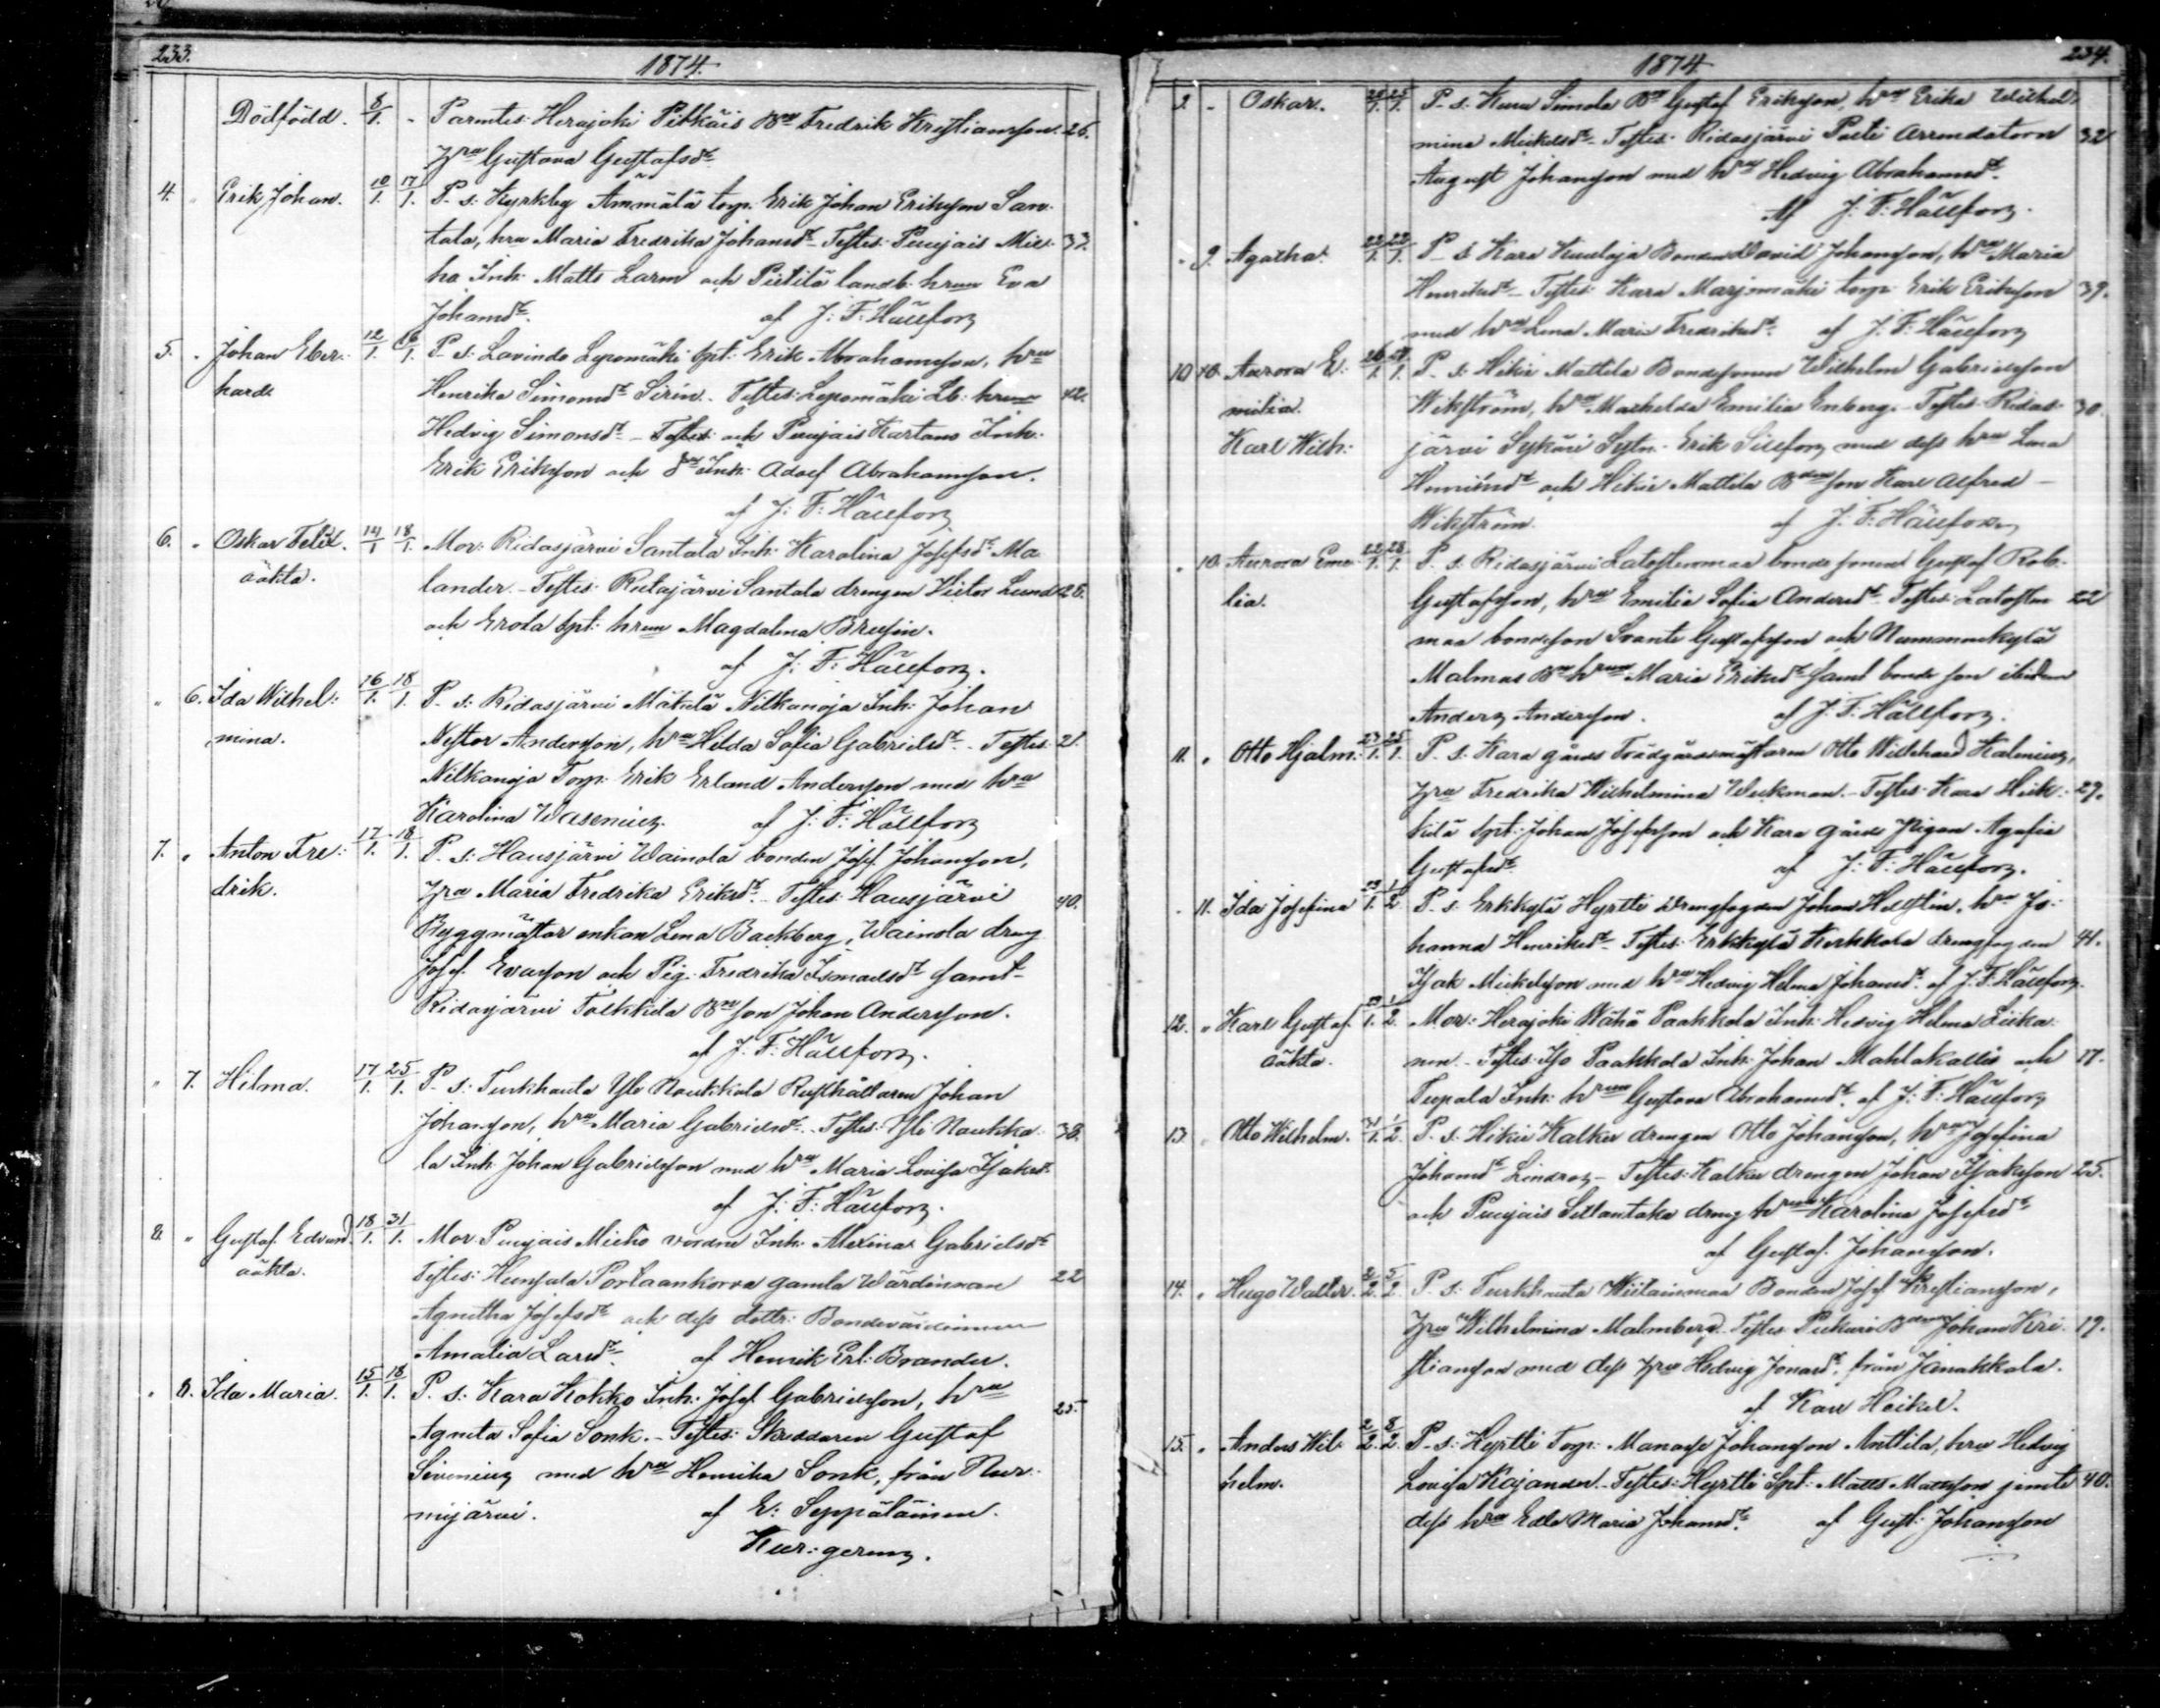 233.
1874.
Dödfödd. 8/1. - Parentes: Herajoki Pitkäis Fredrik Kristiansson. 26.
hru Gustava Gustafsdr.
4. " Erik Johan. 10/1. 17/1. P. s: Kyrkby Ammälä torp. Erik Johan Eriksson San-
tala, hru Maria Fredrika Johansdr. Testes: Puujais Mie- 33.
ho Inh: Matts Larm och Pietilä landb. hrun Eva
Johansdr. af J: F: Hällfors
5. " Johan Eber- 12/1. 16/1. P. s: Lavinde Leponmäki Spt: Erik Abrahamsson, hru
hard. Henrika Simonsdr Sirén. Testes: Lepomäki Lb: hrun 42.
Hedvig Simonsdr - och Puujais Kartano Inh:
Erik Eriksson och Inh: Adolf Abrahamsson.
af J: F: Hällfors
6. " Oskar Felix. 14/1 18/1. Mor: Ridasjärvi Santala Inh: Karolina Josefsdr Ma-
oäkta. lander. - Testes: Ridasjärvi Santala drengen Victor Lund 28.
och Erola Spt: hrun Magdalena Brusin.
af J: F: Hällfors.
" 6. Ida Wilhel- 16/1. 18/1. P. s: Ridasjärvi Mäkelä Nilkanoja Inh: Johan
mina. Nestor Andersson, hru Helda Sofia Gabrielsdr. - Testes: 21.
Nilkanoja Torp: Erik Erland Andersson med hru
Karolina Wasenius. af J: F: Hällfors
7. " Anton Fre- 17/1. 18/1. P. s: Hausjärvi Wainola bonden Josef Johansson,
drik. hru Maria Fredrika Eriksdr. - Testes: Hausjärvi 40.
Byggmästar enkan Lena Backberg, Wainola dreng
Josef Evasson och Pig. Fredrika Ismaelsdr samt
Ridasjärvi Tolkkila son Johan Andersson.
af J: F: Hällfors.
" 7. Hilma. 17/1. 25/1. P. s: Turkhauta Yli Naukkala Rusthållaren Johan
Johansson, hru Maria Gabrielsdr. - Testes: Yli Naukka- 38.
la Inh: Johan Gabrielsson med hru Maria Lovisa Isaksdr
af J: F: Hällfors.
8. " Gustaf Edvard 18/1. 31/1. Mor: Puujais Mieho Inh: Gabrielsdr
oäkta. Testes: Hunsala Portaankorva gamla Wärdinnan 22
Agnetha Josefsdr och dess dotter: Bondevärdinnan
Amalia Larsdr. af Henrik Erl: Brander.
" 8. Ida Maria. 15/1. 18/1. P. s: Kara Kokko Inh: Josef Gabrielsson, hru
Agneta Sofia Sonk. - Testes: Skreddaren Gustaf 25.
Sirenius med hru Henrika Sonk, från Nur-
mijärvi. af E: Seppäläinen.
Kur: gerens.
234.
1874
9. " Oskar. 25/1. P. s: Kuru Simola Gustaf Eriksson, hru Erika Wilhel-
mina Mickelsdr. Testes: Ridasjärvi Pusti Arrendatorn 32
August Johansson med hru Hedvig Abrahamsdr.
Af J: F: Hällfors.
" 9. Agatha. 22/1. P. s: Kara Kuuloja Bonden David Johansson, hru Maria
Henriksdr - Testes: Kara Marjomäki torp: Erik Eriksson 39.
med hru Lena Maria Fredriksdr. af J: F: Hällfors
10 Aurora E- P. s: Hikiä Mattila Bondesonen Wilhelm Gabrielsson
milia. Wikström, hru Mathilda Emilia Enberg. - Testes: Ridas- 30.
Karl Wilh: järvi Sykäri Sytn: Erik Sillfors med dess hru Lena
Henriksdr och Hikiä Mattila son Karl Alfred
Wikström. af J: F: Hällfors
" 10. Aurora Eme- 22/1. 28/1. P. s. Ridasjärvi Latostenmaa bonde sonen Gustaf Rob.
lia. Gustafsson, hru Emilia Sofia Andersdr. Testes: Latosten- 22
maa bondeson Svante Gustafsson och Nummenkylä
Malmas hrun Maria Eriksdr samt bonde son ibidem
Anders Andersson. af J: F: Hällfors.
11. " Otto Hjalm: 23/1. 25/1. P. s: Kara gårds Trädgårdsmästaren Otto Wildehard Kalenius,
hru Fredrika Wilhelmina Weckman. - Testes: Kara Heik- 29.
kilä Spt: Johan Josefsson och Kara gårds Pigan Agafia
Gustafsdr. af J: F: Hällfors.
" 11. Ida Josefina 1/2 P. s: Erkkylä Hyrtti Drengfogden Johan Hellstén, hru Jo-
hanna Henriksdr - Testes: Erkkylä Kurkkola drengfogden 41.
Isak Mickelsson med hru Hedvig Helena Johansdr. af J. F. Hällfors.
12. " Karl Gustaf 1/2. Mor: Herajoki Wähä Paakkola Inh: Hedvig Helena Liika-
oäkta. nen. - Testes: Iso Paakkola Inh: Johan Mahlakallio och 17.
Tupala Inh: hrun Gustava Abrahamsdr. af J: F: Hällfors
13. " Otto Wilhelm. 31/1. 1/2. P. s: Hikiä Kalku drengen Otto Johansson, hru Josefina
Johansdr Lindros - Testes: Kalku drengen Johan Isaksson 25.
och Puujais Sillantaka dreng hrun Karolina Josefsdr
af Gustaf Johansson.
14. " Hugo Walter. 2/2. 5/2. P. s: Turkhauta Wiitainmaa Bonden Josef Kristiansson,
hru Wilhelmina Malmberg. Testes: Johan Kri- 19.
stiansson med dess hru Hedvig Jonasdr. från Janakkala.
af Karl Heikel.
15. " Anders Wil- 2/2. 8/2. P. s: Hyrtti Torp: Manasse Johansson Anttila, hru Hedvig
helm. Lovisa Kajander - Testes: Hyrtti Spt: Matts Mattsson jemte 40.
dess hru Edla Maria Johansdr. af Gust: Johansson